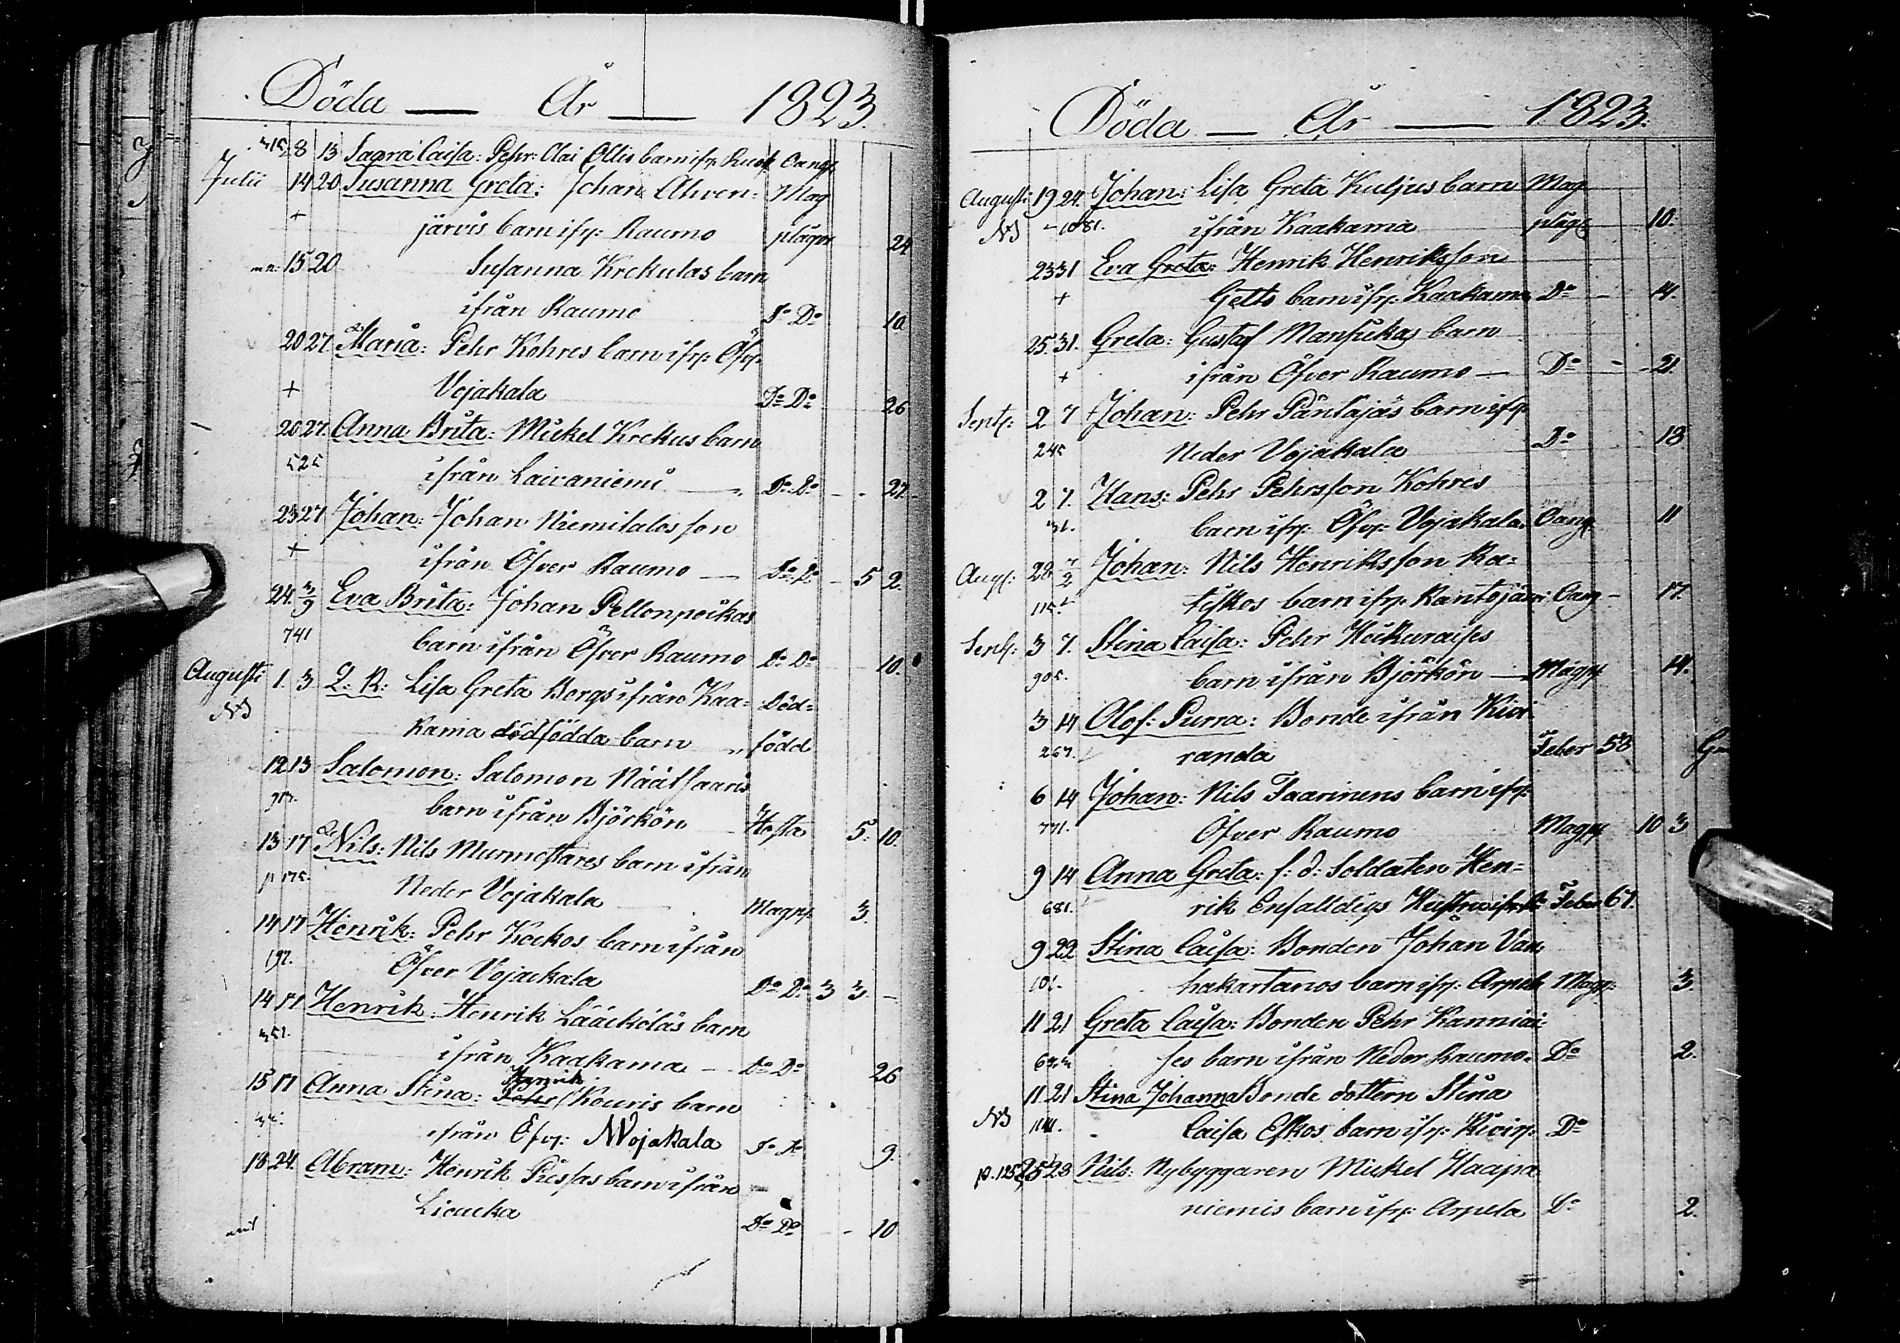 Döda — År — 1823.
8 13 Saara Caisa: Pehr Olai Ollis barn ifr:
Julii 14 20 Susanna Greta: Johan Ahven- Mag
+ järvis barn ifr: Raumo plågor 24
15 20 Susanna Krekulas barn
ifrån Raumo Do Do 10
20 27 Maria: Pehr Kohres barn ifr: Öfv:
+ Vojakala Do Do 26
20 27. Anna Brita: Mickel Krekus barn
525 ifrån Laivaniemi Do Do - - 27.
23 27 Johan: Johan Niemitalos son
+ ifrån Öfver Raumo — Do Do - 5 2.
24. 3/9 Eva Brita: Johan Pellonpoikas
741 barn ifrån Öfver Raumo Do Do 10.
Augusti 1. 3 Lisa Greta Borgs ifrån Kaa- Död-
NB kama dödfödda barn „ född
12 13 Salomon: Salomon Näätsaaris
barn ifrån Björkön Hosta 5. 10.
13 17 Nils: Nils Murmestares barn ifrån
p 175. Neder Vojakala Magpl 3.
14 17 Henrik: Pehr Kockos barn ifrån
197. Öfver Vojackala Do Do 3 3. -
14 17 Henrik: Henrik Lääcköläs barn
351. ifrån Kaakama — Do Do 26
Henrik
15 17 Anna Stina: Pehr Kouris barn
ifrån Öfv: Wojakala Do Do 9.
18 24. Abram: Henrik Piessas barn ifrån
Liacka Do Do - - 10
Döda — År — 1823.
Augusti 19 24. Johan: Lisa Greta Kuljus barn Mag
NB - 1081. ifrån Kaakama plågr 10.
23 31 Eva Greta: Henrik Henriksson
+ Getts barn ifr: Kaakama Do — 4.
25 31. Greta: Gustaf Mansikas barn
+ ifrån Öfver Raumo — Do - - 21.
Sept: 2 7 Johan: Pehr Päntäjäs barn ifr:
245 Neder Vojakala Do 18
2 7. Hans: Pehr Pehrsson Kohres
31. barn ifr: Öfv: Vojakala Oang 11
Aug: 28 7/2 Johan: Nils Henriksson Ra-
115 tiskos barn ifr: Kantojärvi Oang — 17.
Sept: 3 7. Stina Caisa: Pehr Keikuraises
905. barn ifrån Björkön — Magpl 14.
3 14 Olof: Purra: Bonde ifrån Kivi-
267. randa Feber 58
6 14 Johan: Nils Taarinens barn ifr:
771. Öfver Raumo Magpl 10 3
9 14 Anna Greta: f: d: Soldaten Hen-
681. rik Enfalldigs Hustru ifr: Feber 67.
9 22 Stina Caisa: Bonden Johan Van-
101. hakartanos barn ifr: Arpela Magpl: 3.
11 21 Greta Caisa: Bonden Pehr Kanniai-
ses barn ifrån Neder Raumo. Do 2.
11 21 Stina Johanna Bonde dottern Stina
NB Caisa Eskos barn ifr: Kivir: Do
p. 125 25 28 Nils: Nybyggaren Mickel Haapa-
niemis barn ifr: Arpela Do 2.